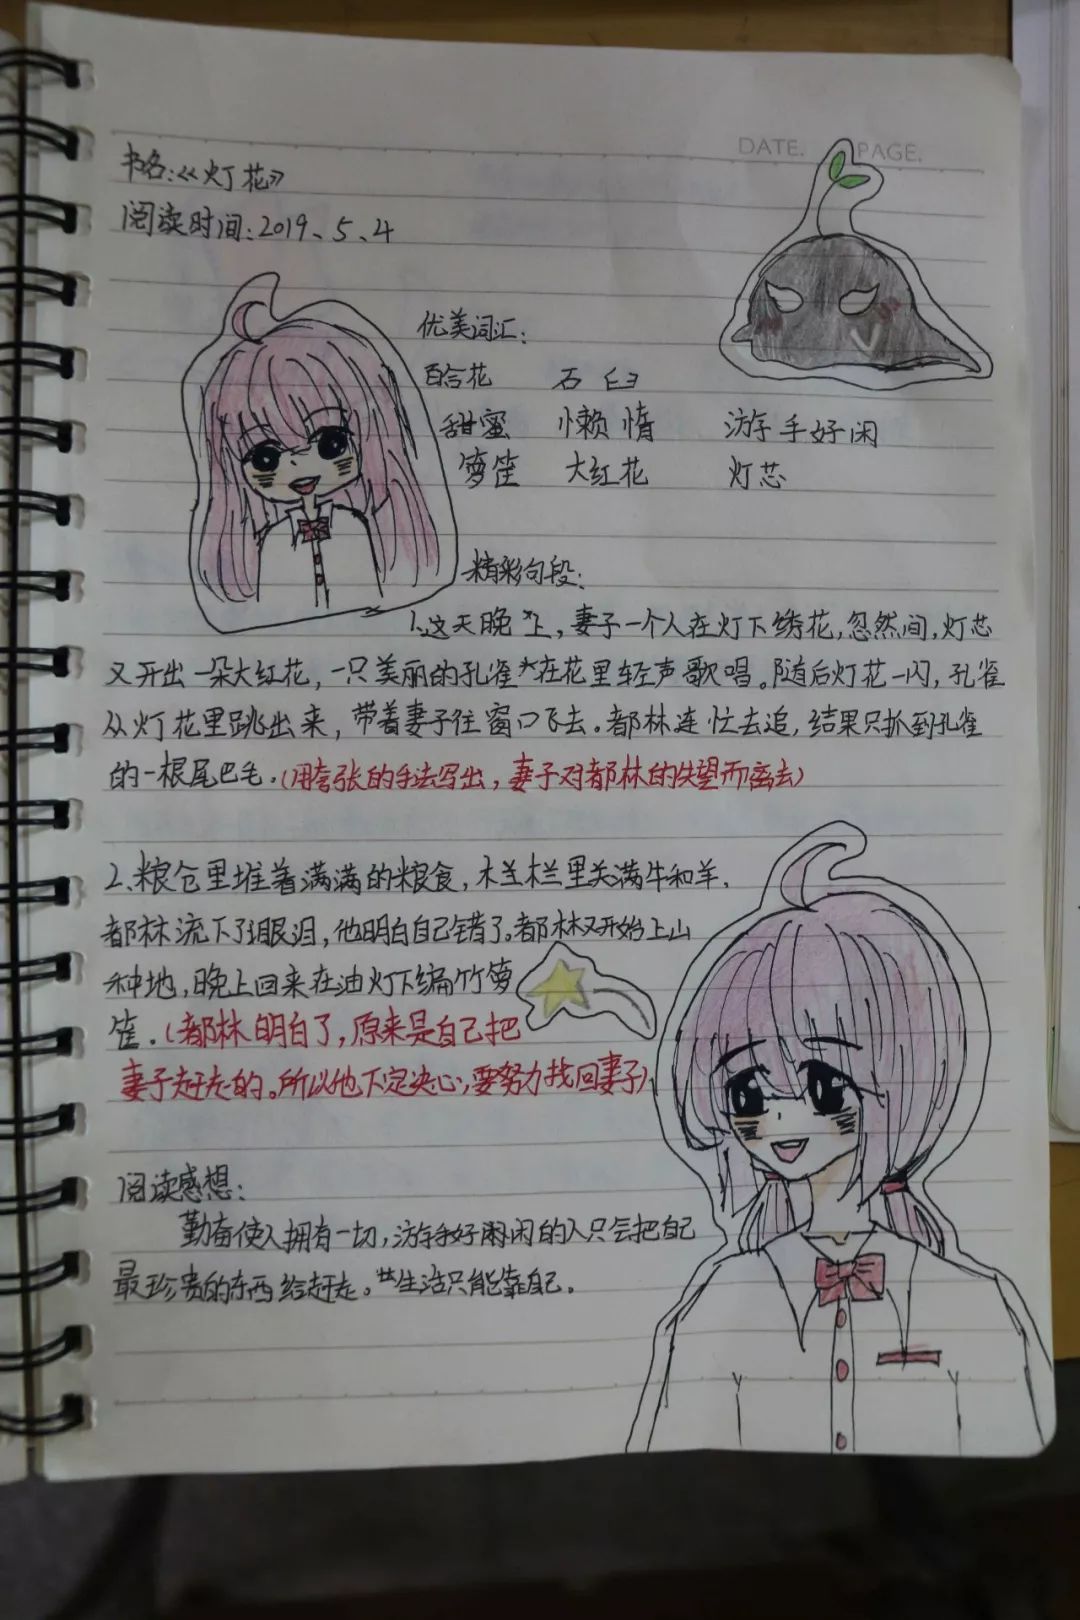 DATE. PAGE.
书名:《灯花》
阅读时间:2019、5、4
优美词汇:
百合花 石臼
甜蜜 懒惰 游手好闲
箩筐 大红花 灯芯
精彩句段:
1、这天晚上,妻子一个人在灯下绣花,忽然间,灯芯
又开出一朵大红花,一只美丽的孔雀在花里轻声歌唱。随后灯花一闪,孔雀
从灯花里跳出来,带着妻子往窗口飞去。都林连忙去追,结果只抓到孔雀
的一根尾巴毛。(用夸张的手法写出,妻子对都林的失望而离去)
2、粮仓里堆着满满的粮食,木栏里关满牛和羊.
都林流下了眼泪,他明白自己错了。都林又开始上山
种地,晚上回来在油灯下编竹箩
筐.(都林明白了,原来是自己把
妻子赶走的。所以他下定决心,要努力找回妻子)
阅读感想:
勤奋使人拥有一切,游手好闲的人只会把自己
最珍贵的东西给赶走。生活只能靠自己.